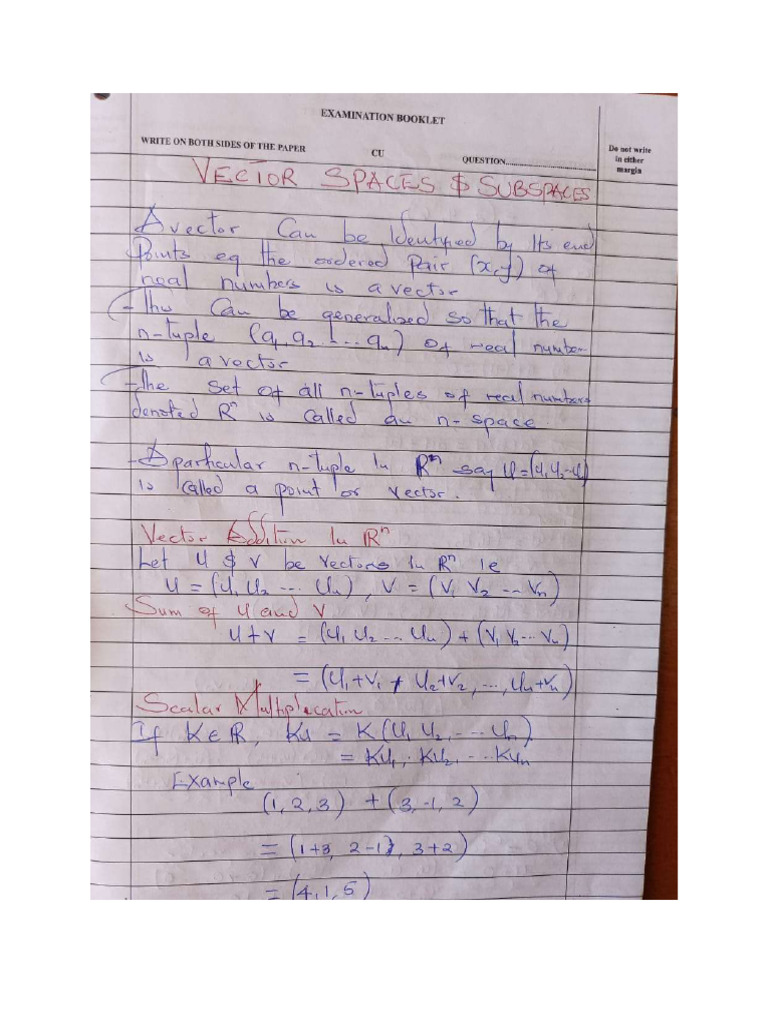 EXAMINATION BOOKLET
WRITE ON BOTH SIDES OF THE PAPER
CU
QUESTION
Do not write
in either
margin
VECTOR SPACES $ SUBSPACES
A vector Can be Identified by Its end
Points eg the ordered Pair (x,y) of
real numbers is a vector
- This Can be generalized so that the
n-tuple (a1, a2 .... an) of real number
is a vector
- The set of all n-tuples of real numbers
denoted Rⁿ is called an n-space.
- A particular n-tuple In Rⁿ say U=(U1 U2 - U)
is called a point or vector.
Vector Addition In Rⁿ
Let U $ V be Vectors In Rⁿ ie
U = (U1 U2 ... Un), V = (V1 V2 ... Vn)
Sum of U and V
U+V = (U1 U2 ... Un) + (V1 V2 ... Vn)
= (U1+V1 , U2+V2, ..., Un+Vn)
Scalar Multiplication
If K∈R, Ku = K(U1 U2, ... Un)
= KU1, KU2, ... KUn
Example
(1, 2, 3) + (3, -1, 2)
= (1+3, 2-1), 3+2)
= (4, 1, 5)